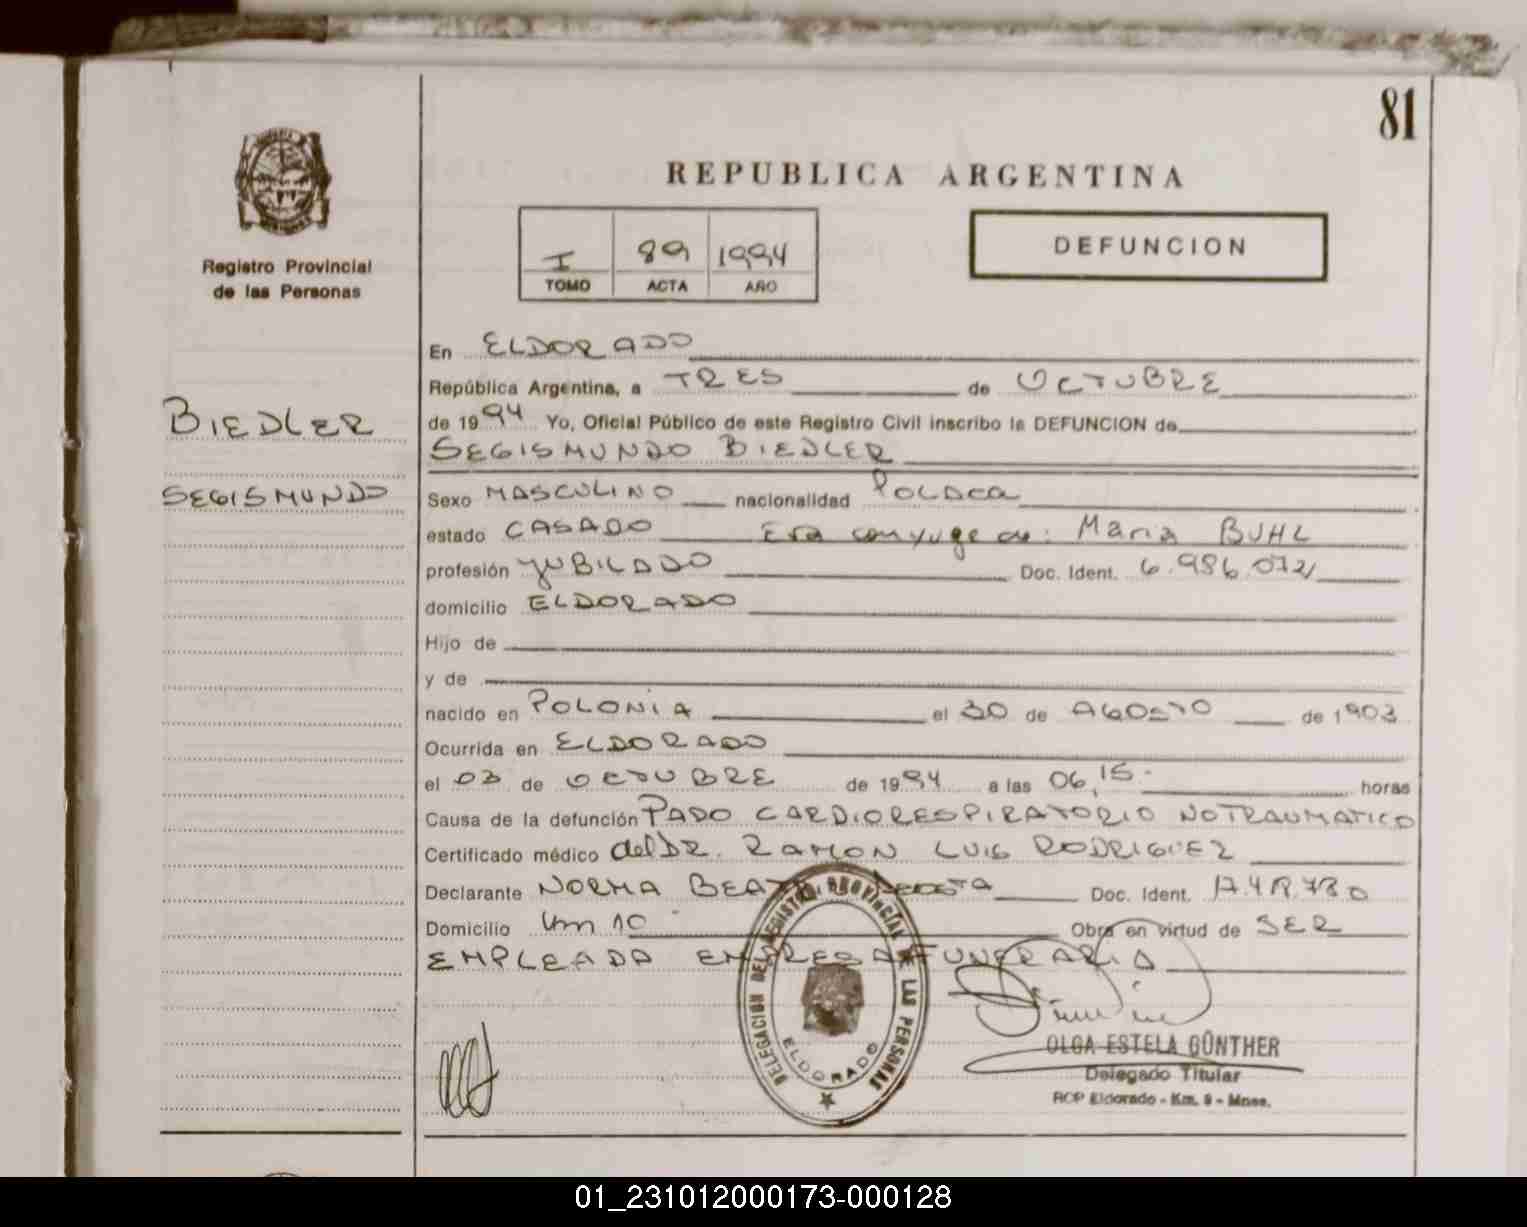 81
REPUBLICA ARGENTINA
Registro Provincial
de las Personas
I 89 1994
TOMO ACTA AÑO
DEFUNCION
BIEDLER
SEGISMUNDO
En ELDORADO
República Argentina, a TRES de OCTUBRE
de 1994 Yo, Oficial Público de este Registro Civil inscribo la DEFUNCION de
SEGISMUNDO BIEDLER
Sexo MASCULINO nacionalidad POLACA
estado CASADO Era conyuge de: Maria BUHL
profesión JUBILADO Doc. Ident. 6.986.072
domicilio ELDORADO
Hijo de
y de
nacido en POLONIA el 30 de AGOSTO de 1903
Ocurrida en ELDORADO
el 03 de OCTUBRE de 1994 a las 06,15 horas
Causa de la defunción PARO CARDIORESPIRATORIO NO TRAUMATICO
Certificado médico del DR. RAMON LUIS RODRIGUEZ
Declarante NORMA Doc. Ident.
Domicilio Km 10 Obra en virtud de SER
EMPLEADA EMPRESA FUNERARIA
DELEGACION DEL REGISTRO PROVINCIAL DE LAS PERSONAS
ELDORADO
OLGA ESTELA GÜNTHER
Delegado Titular
RCP Eldorado - Km. 9 - Mnes.
01_231012000173-000128